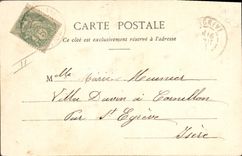 CARTE POSTALE
Ce côté est exclusivement réservé à l'adresse
Mlle Marie Meunier
Villa Davin à Cornillon
Par St Egrève
Isère